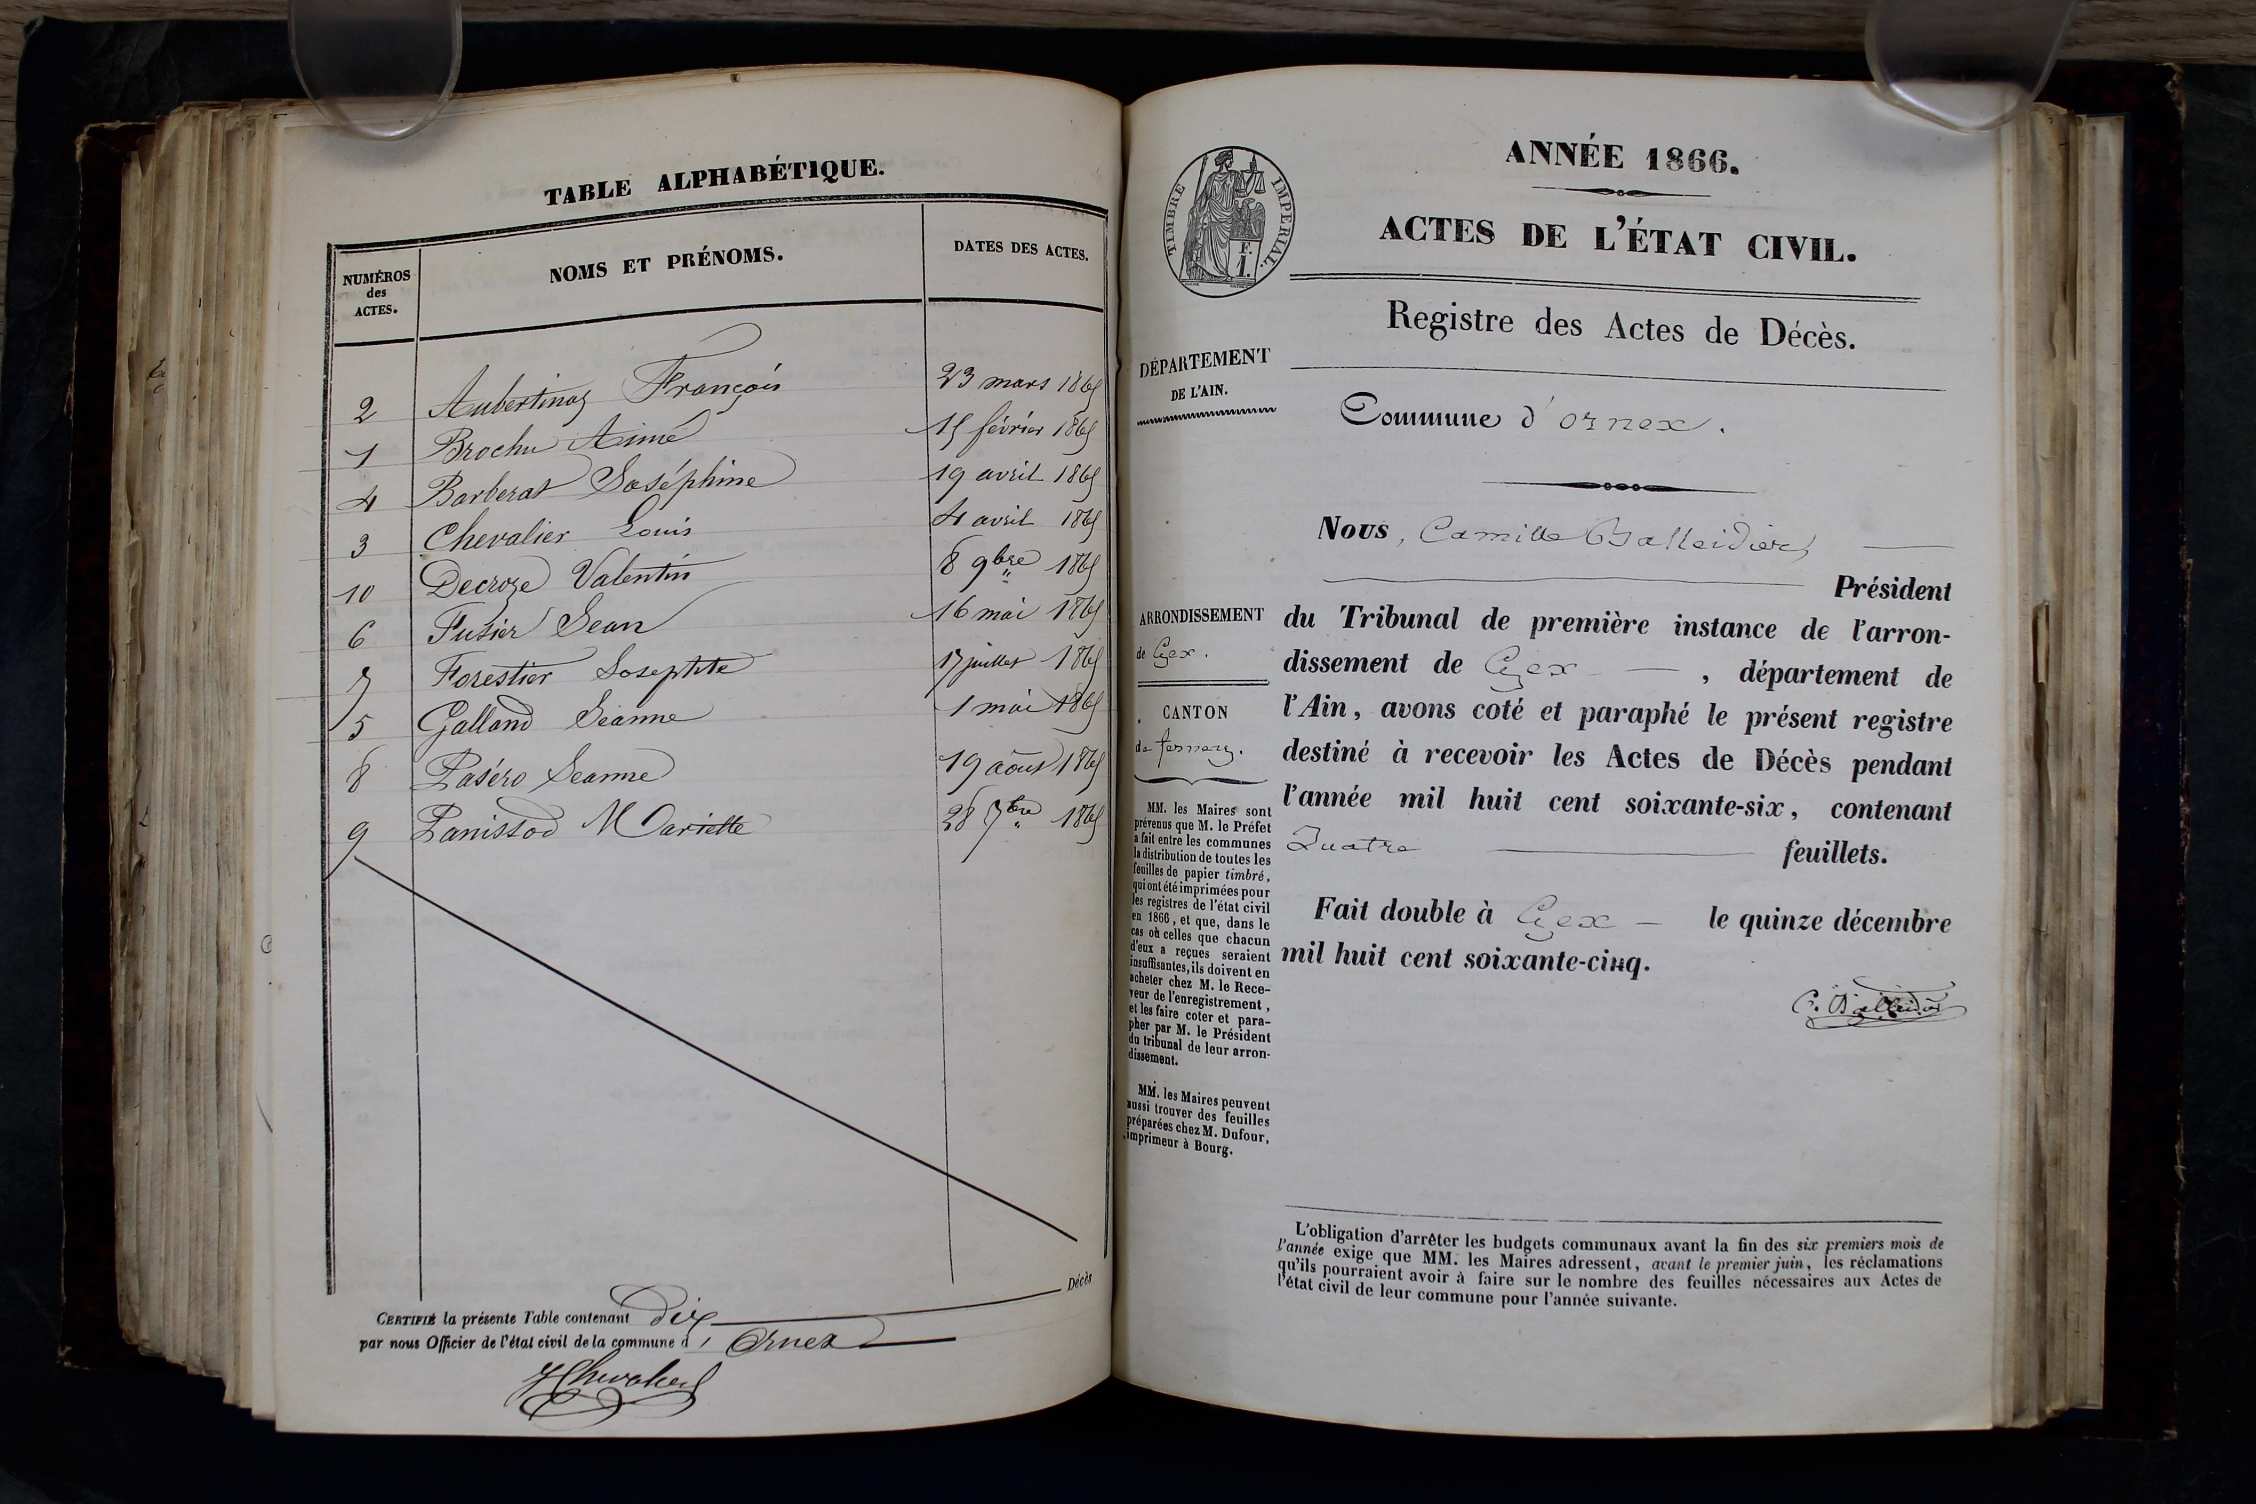 TABLE ALPHABÉTIQUE.
NUMÉROS des ACTES. NOMS ET PRÉNOMS. DATES DES ACTES.
2 Aubertinaz François 23 mars 1865
1 Brochu Aimé 15 février 1865
4 Barberat Joséphine 19 avril 1865
3 Chevalier Louis 4 avril 1865
10 Decroze Valentin 8 9bre 1865
6 Fusier Jean 16 mai 1865
7 Forestier Josephte 17 juillet 1865
5 Galland Jeanne 1 mai 1865
8 Paséro Jeanne 19 août 1865
9 Panissod Mariette 28 7bre 1865
Décès
CERTIFIÉ la présente Table contenant dix
par nous Officier de l'état civil de la commune d'Ornex
Chevalier
ANNÉE 1866.
TIMBRE IMPERIAL.
F.
1.
ACTES DE L'ÉTAT CIVIL.
Registre des Actes de Décès.
DÉPARTEMENT
DE L'AIN.
Commune d'ornex.
Nous, Camille Balleidier
Président
ARRONDISSEMENT
de Gex.
CANTON
de ferney.
du Tribunal de première instance de l'arron-
dissement de Gex, département de
l'Ain, avons coté et paraphé le présent registre
destiné à recevoir les Actes de Décès pendant
l'année mil huit cent soixante-six, contenant
Quatre feuillets.
Fait double à Gex le quinze décembre
mil huit cent soixante-cinq.
C. Balleidier
MM. les Maires sont
prévenus que M. le Préfet
a fait entre les communes
la distribution de toutes les
feuilles de papier timbré,
qui ont été imprimées pour
les registres de l'état civil
en 1866, et que, dans le
cas où celles que chacun
d'eux a reçues seraient
insuffisantes, ils doivent en
acheter chez M. le Rece-
veur de l'enregistrement,
et les faire coter et para-
pher par M. le Président
du tribunal de leur arron-
dissement.
MM. les Maires peuvent
aussi trouver des feuilles
préparées chez M. Dufour,
imprimeur à Bourg.
L'obligation d'arrêter les budgets communaux avant la fin des six premiers mois de
l'année exige que MM. les Maires adressent, avant le premier juin, les réclamations
qu'ils pourraient avoir à faire sur le nombre des feuilles nécessaires aux Actes de
l'état civil de leur commune pour l'année suivante.